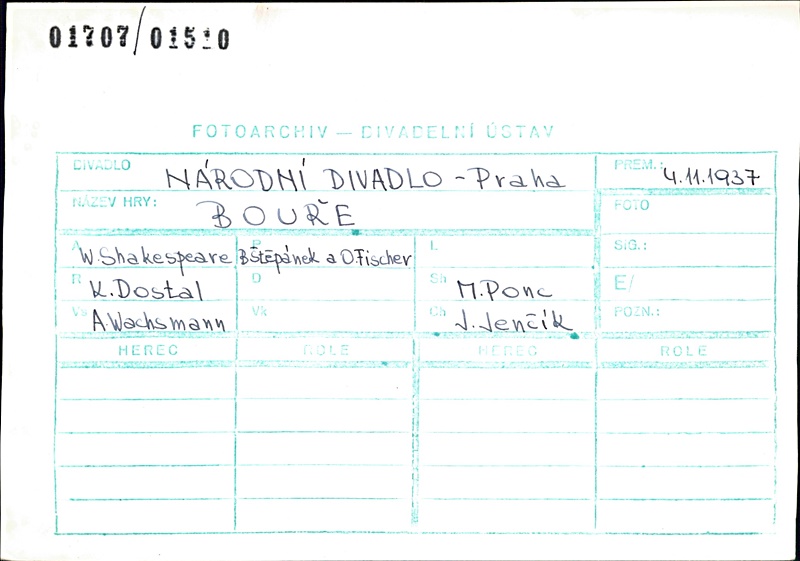 01707/01510
FOTOARCHIV — DIVADELNÍ ÚSTAV
DIVADLO NÁRODNÍ DIVADLO - Praha
PREM.: 4.11.1937
NÁZEV HRY: BOUŘE
FOTO
A W. Shakespeare
P B Štěpánek a O. Fischer
L
SIG.:
R K. Dostal
D
Sh M. Ponc
E/
Vs A. Wachsmann
Vk
Ch J. Jenčík
POZN.:
HEREC ROLE HEREC ROLE